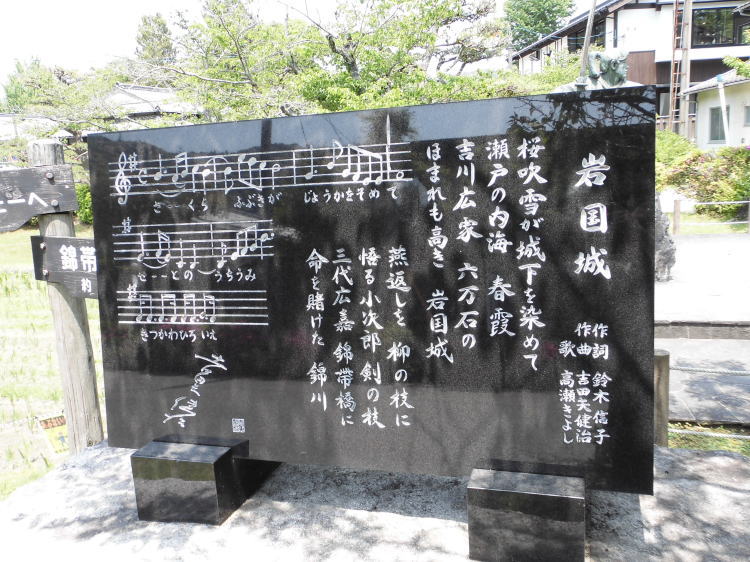 岩国城
作詞 鈴木信子
作曲 吉田天健治
歌 高瀬きよし
桜吹雪が城下を染めて
瀬戸の内海 春霞
吉川広家 六万石の
ほまれも高き 岩国城
燕返しを 柳の枝に
悟る小次郎剣の技
三代広嘉 錦帯橋に
命を賭けた 錦川
さーーくら ふぶきが じょうかをそめて
せーーとの うちうみ
きつかわひろ いえ
錦帯
約